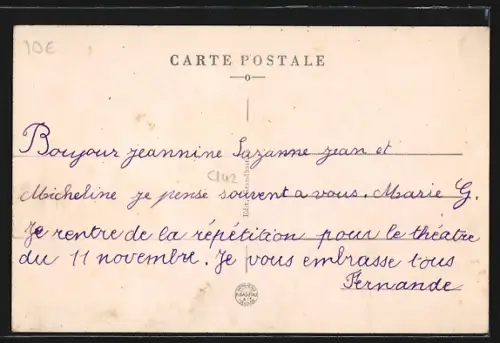 10€
CARTE POSTALE
Bonjour Jeannine Suzanne Jean et
C142
Micheline je pense souvent a vous. Marie G.
Je rentre de la répétition pour le théatre
du 11 novembre. Je vous embrasse tous
Fernande